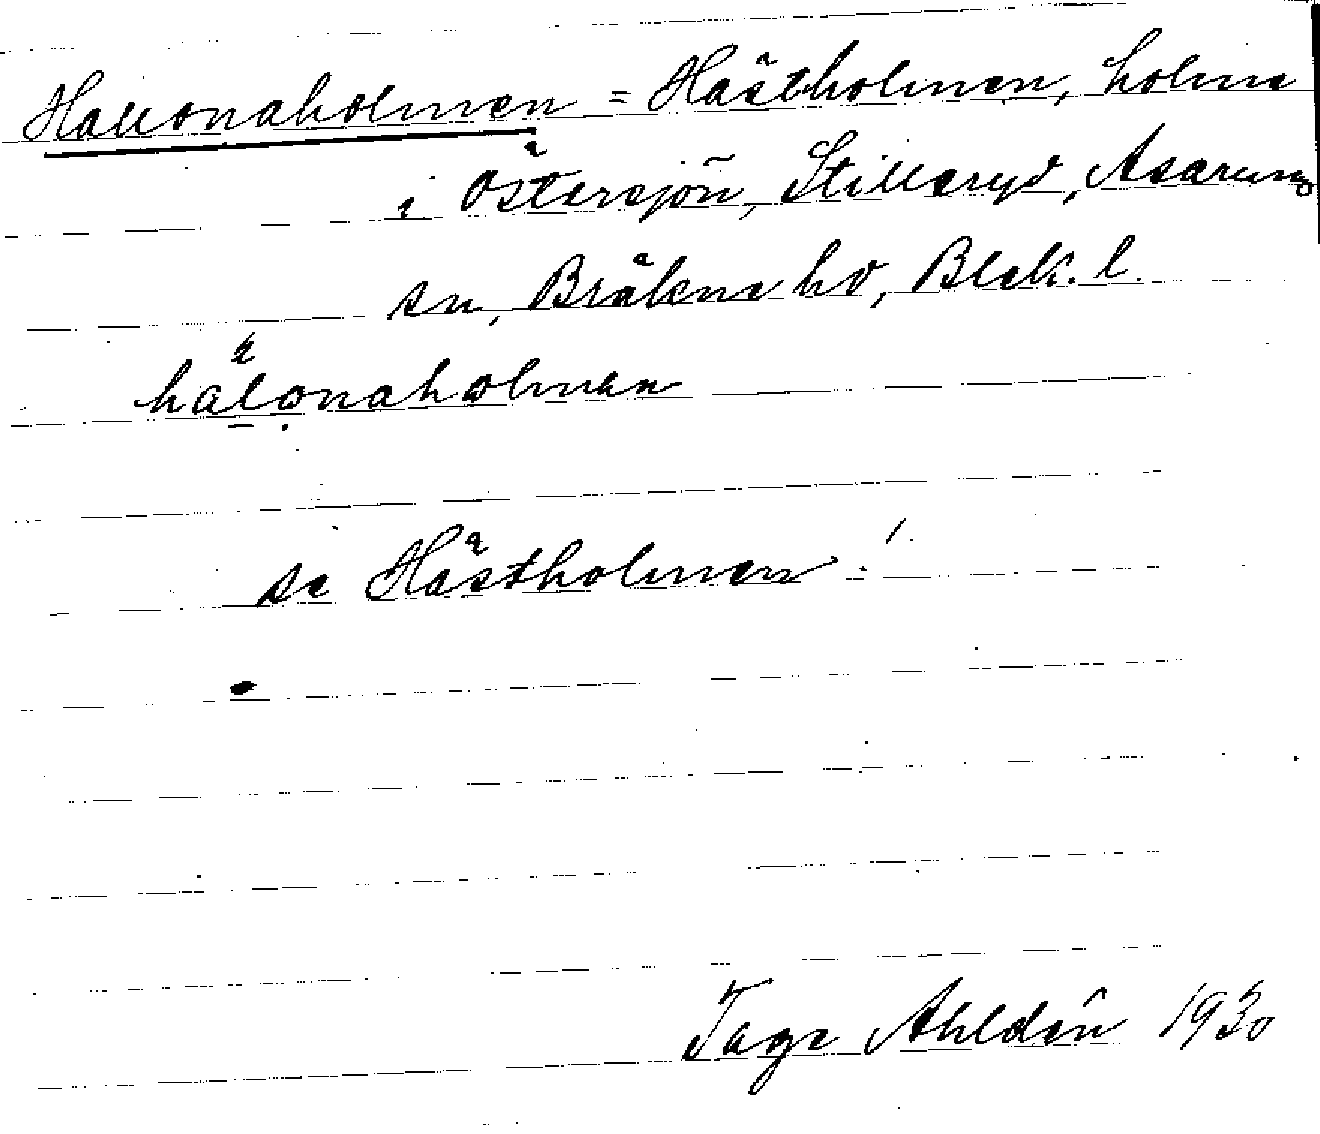 Hallonaholmen = Hästholmen, holme
i Östersjön, Stilleryd, Asarums
sn, Bräkne hd, Blek. l.
hal̠onahọlmen
se Hästholmen!
Tage Ahldén 1930